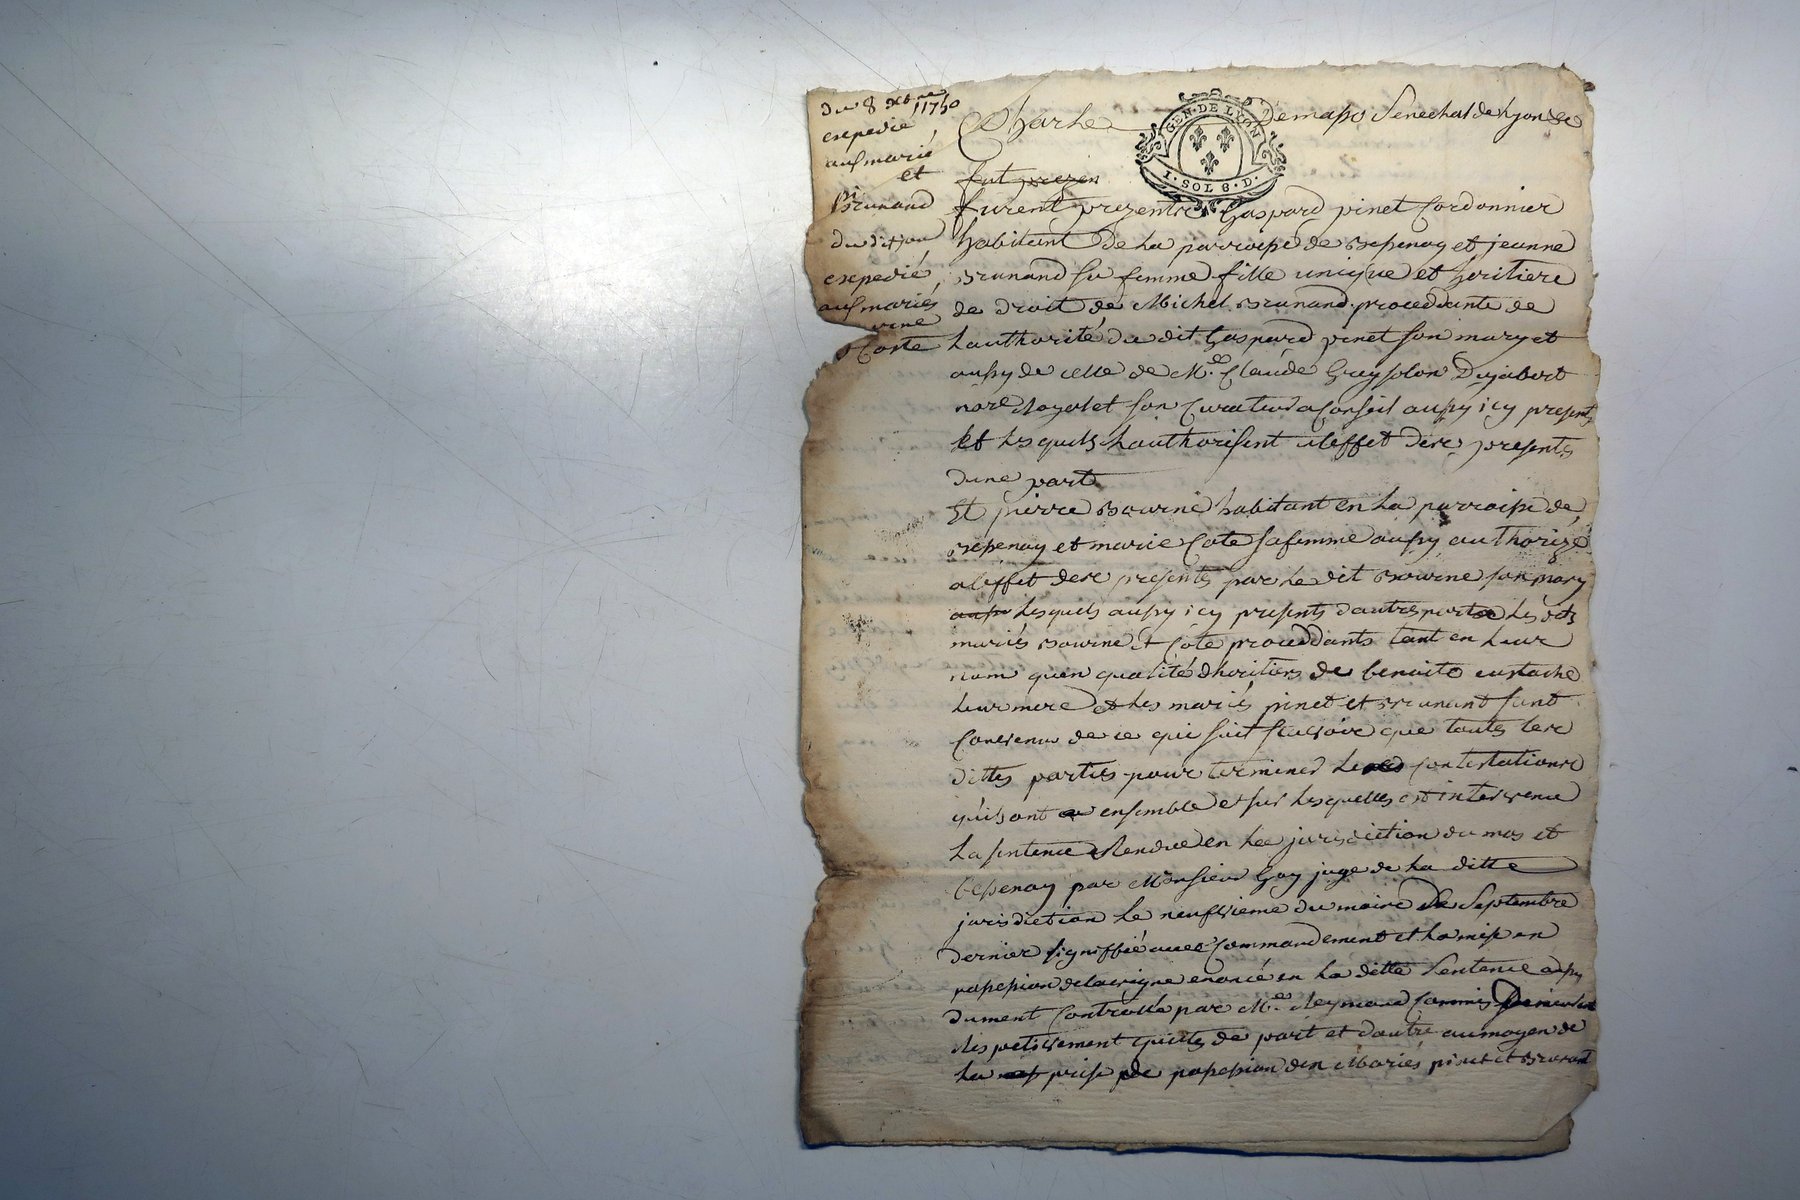 du 8 xbre 1750
expedié
aux mariés
et
Brunand
du dit jour
expedié
aux mariés
Coste
Charle Demasso Senechal de Lyon &c
GEN·DE LYON
1·SOL 8·D·
fut prezen
furent prezents Gaspard pinet Cordonnier
habitant de la parroisse de Bessenay et jeanne
Brunand sa femme fille unique et heritiere
de droit de Michel Brunand procedante de
lauthorité du dit Gaspard pinet son mary et
aussy de celle de Me. Claude Greysolon Dujabert
nore Royal et son Curateur a Conseil aussy icy presents
et lesquels lauthorisent a leffet deces presents
dune part
Et pierre Bourne habitant en la parroisse de
Bessenay et marie Cote sa femme aussy authorizé
a leffet dece presents par le dit Bourne son mary
aussy lesquels aussy icy presents dautres part les dts
mariés Bourne et Cote proceddants tant en leur
nom quen qualité dheritiers de benoite eustache
leur mere et les mariés pinet et Brunant sont
Convenu de ce qui suit scavoir que toutes lesd
dittes parties pour terminer les Contestations
quils ont ensemble et sur lesquelles est intervenu
la sentence Rendue en la jurisdiction du mas et
bessenay par Monsieur Goy juge de la ditte
jurisdiction le neufvieme du moire de Septembre
dernier signiffié avec Commandement et la mise en
possession de la vigne enoncé en la ditte Sentence aussy
dument Controllé par Me. Reymond Commis
Respetivement quites de part et dautre aumoyen de
la prise de possession den Mariés pinet et Brunant